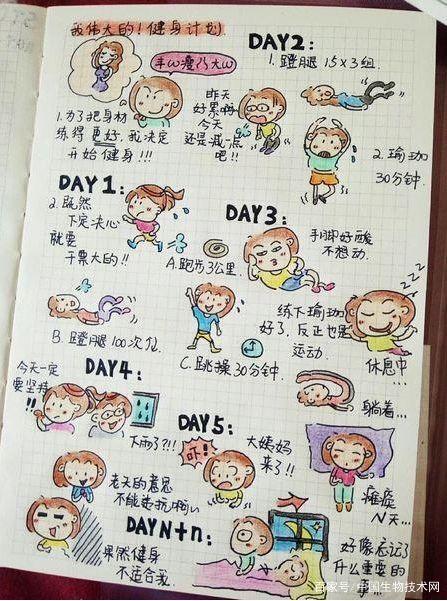 我伟大的!健身计划
丰ω瘦乃大ω
1.为了把身材
练得更好,我决定
开始健身!!!
DAY2:
1.蹬腿 15×3组.
昨天
好累啊
今天
还是减一点
吧!!
2.瑜珈
30分钟.
DAY1:
2.既然
下定决心
就要
干票大的!!
A.跑步3公里.
B.蹬腿100次位
C.跳操30分钟.
DAY3:
手脚好酸
不想动.
练下瑜珈
好了,反正也是
运动.
zzz
休息中...
躺着...
DAY4:
今天一定
要坚持
!!
下雨了?!!
老天的意思
不能违抗啊
DAY5:
吓!
大姨妈
来了!!
瘫痪
N天...
DAYN+n:
果然健身
不适合我.
好像忘记了
什么重要的
百家号/中国生物技术网